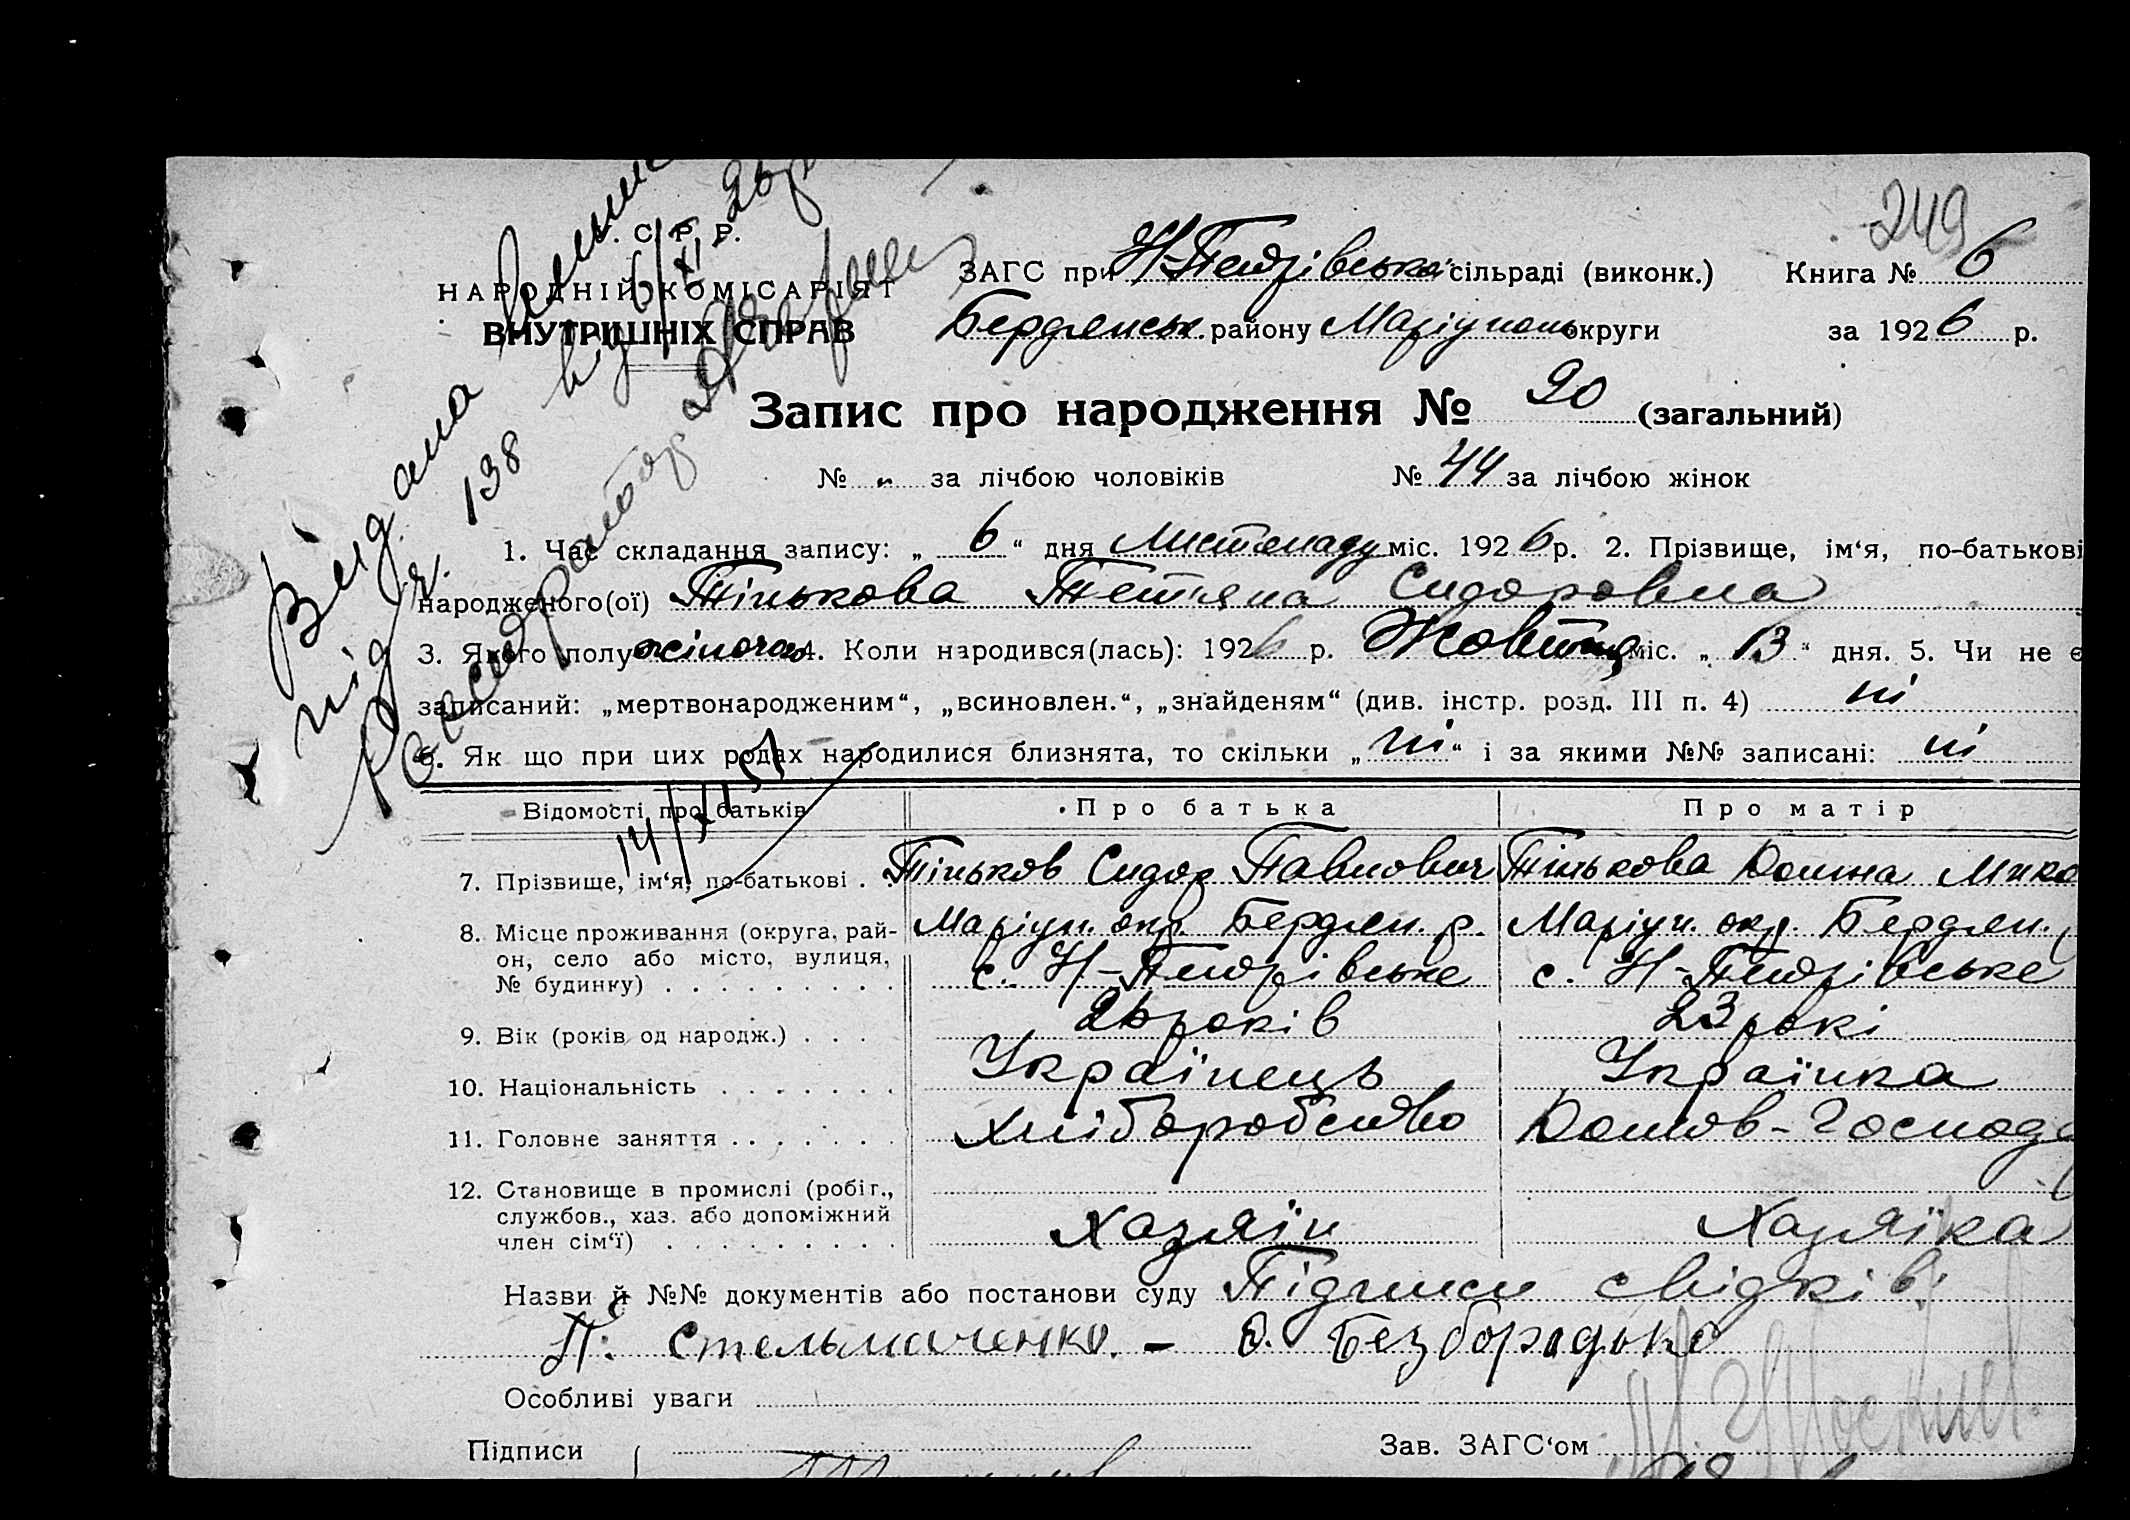 249
С. Р. Р.
НАРОДНІЙ КОМІСАРІЯТ
ВНУТРІШНІХ СПРАВ
ЗАГС при Н-Петрівській сільраді (виконк.) Книга № 6
Бердянськ. району Маріупольокруги за 1926 р.
Видана
від 6/XI 26 р
під ч. 138
Запис про народження № 90 (загальний)
№ „ за лічбою чоловіків № 44 за лічбою жінок
1. Час складання запису: „ 6 “ дня Листопаду міс. 1926 р. 2. Прізвище, ім‘я, по-батькові
народженого(ої) Тінькова Тетяна Сидоровна
3. Якого полу жіночого 4. Коли народився(лась): 1926 р. Жовтня міс. „ 13 “ дня. 5. Чи не є
записаний: „мертвонародженим“, „всиновлен.“, „знайденям“ (див. інстр. розд. III п. 4) ні
6. Як що при цих родах народилися близнята, то скільки „ ні “ і за якими №№ записані: ні
Відомості про батьків Про батька Про матір
7. Прізвище, ім‘я, по-батькові . . Тіньков Сидор Павлович Тінькова Домна Мико
8. Місце проживання (округа, рай- Маріуп. окр. Бердян. р. Маріуп. окр. Бердян.
он, село або місто, вулиця, с. Н-Петрівське с. Н-Петрівське
№ будинку) . . . . . . . . .
9. Вік (років од народж.) . . . 26 років 23 рокі
10. Національність . . . . . . . Українець Українка
11. Головне заняття . . . . . . . Хліборобство Домов-Господ
12. Становище в промислі (робіт.,
службов., хаз. або допоміжний Хазяїн Хазяїка
член сім‘ї) . . . . . . . . .
Назви й №№ документів або постанови суду Підписи свідків:
П. Стельмаченко. – О. Безбородько
Особливі уваги
Підписи Зав. ЗАГС‘ом